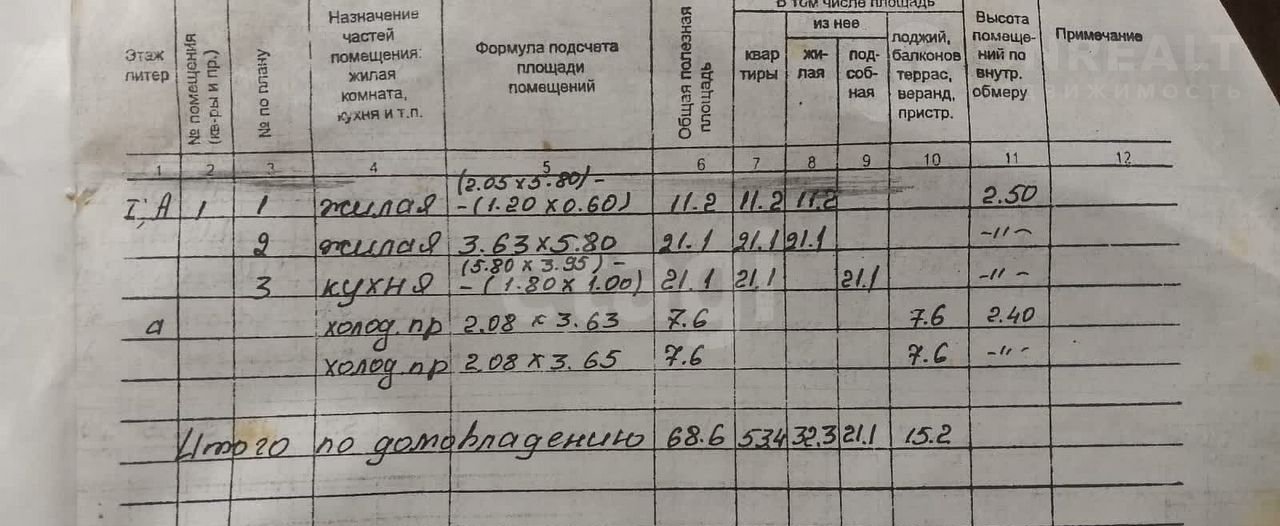 в том числе площадь
Этаж литер
№ помещения (кв-ры и пр.)
№ по плану
Назначение частей помещения: жилая комната, кухня и т.п.
Формула подсчета площади помещений
Общая полезная площадь
квар тиры
из нее
жи- лая
под- соб- ная
лоджий, балконов террас, веранд, пристр.
Высота помеще- ний по внутр. обмеру
Примечание
REALT
ВИЖИМОСТЬ
1 2 3 4 5 6 7 8 9 10 11 12
(2.05 x 5.80) -
I, A 1 1 жилая - (1.20 x 0.60) 11.2 11.2 11.2 2.50
2 жилая 3.63 x 5.80 21.1 21.1 21.1 -"-
(5.80 x 3.95) -
3 кухня - (1.80 x 1.00) 21.1 21.1 21.1 -"-
а холод. пр 2.08 x 3.63 7.6 7.6 2.40
холод. пр 2.08 x 3.65 7.6 7.6 -"-
Итого по домовладению 68.6 53.4 32.3 21.1 15.2